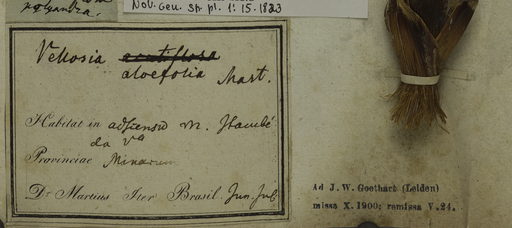 polyandra.
Nov. Gen. Sp. pl. 1: 15. 1823
Vellosia acutiflora
aloefolia Mart.
Habitat in adscensu m. Itambé
da Va
Provinciae Minarum
Dr. Martius Iter Brasil. Jun. Jul.
Ad J. W. Goethart (Leiden)
missa X.1900; remissa V.24.